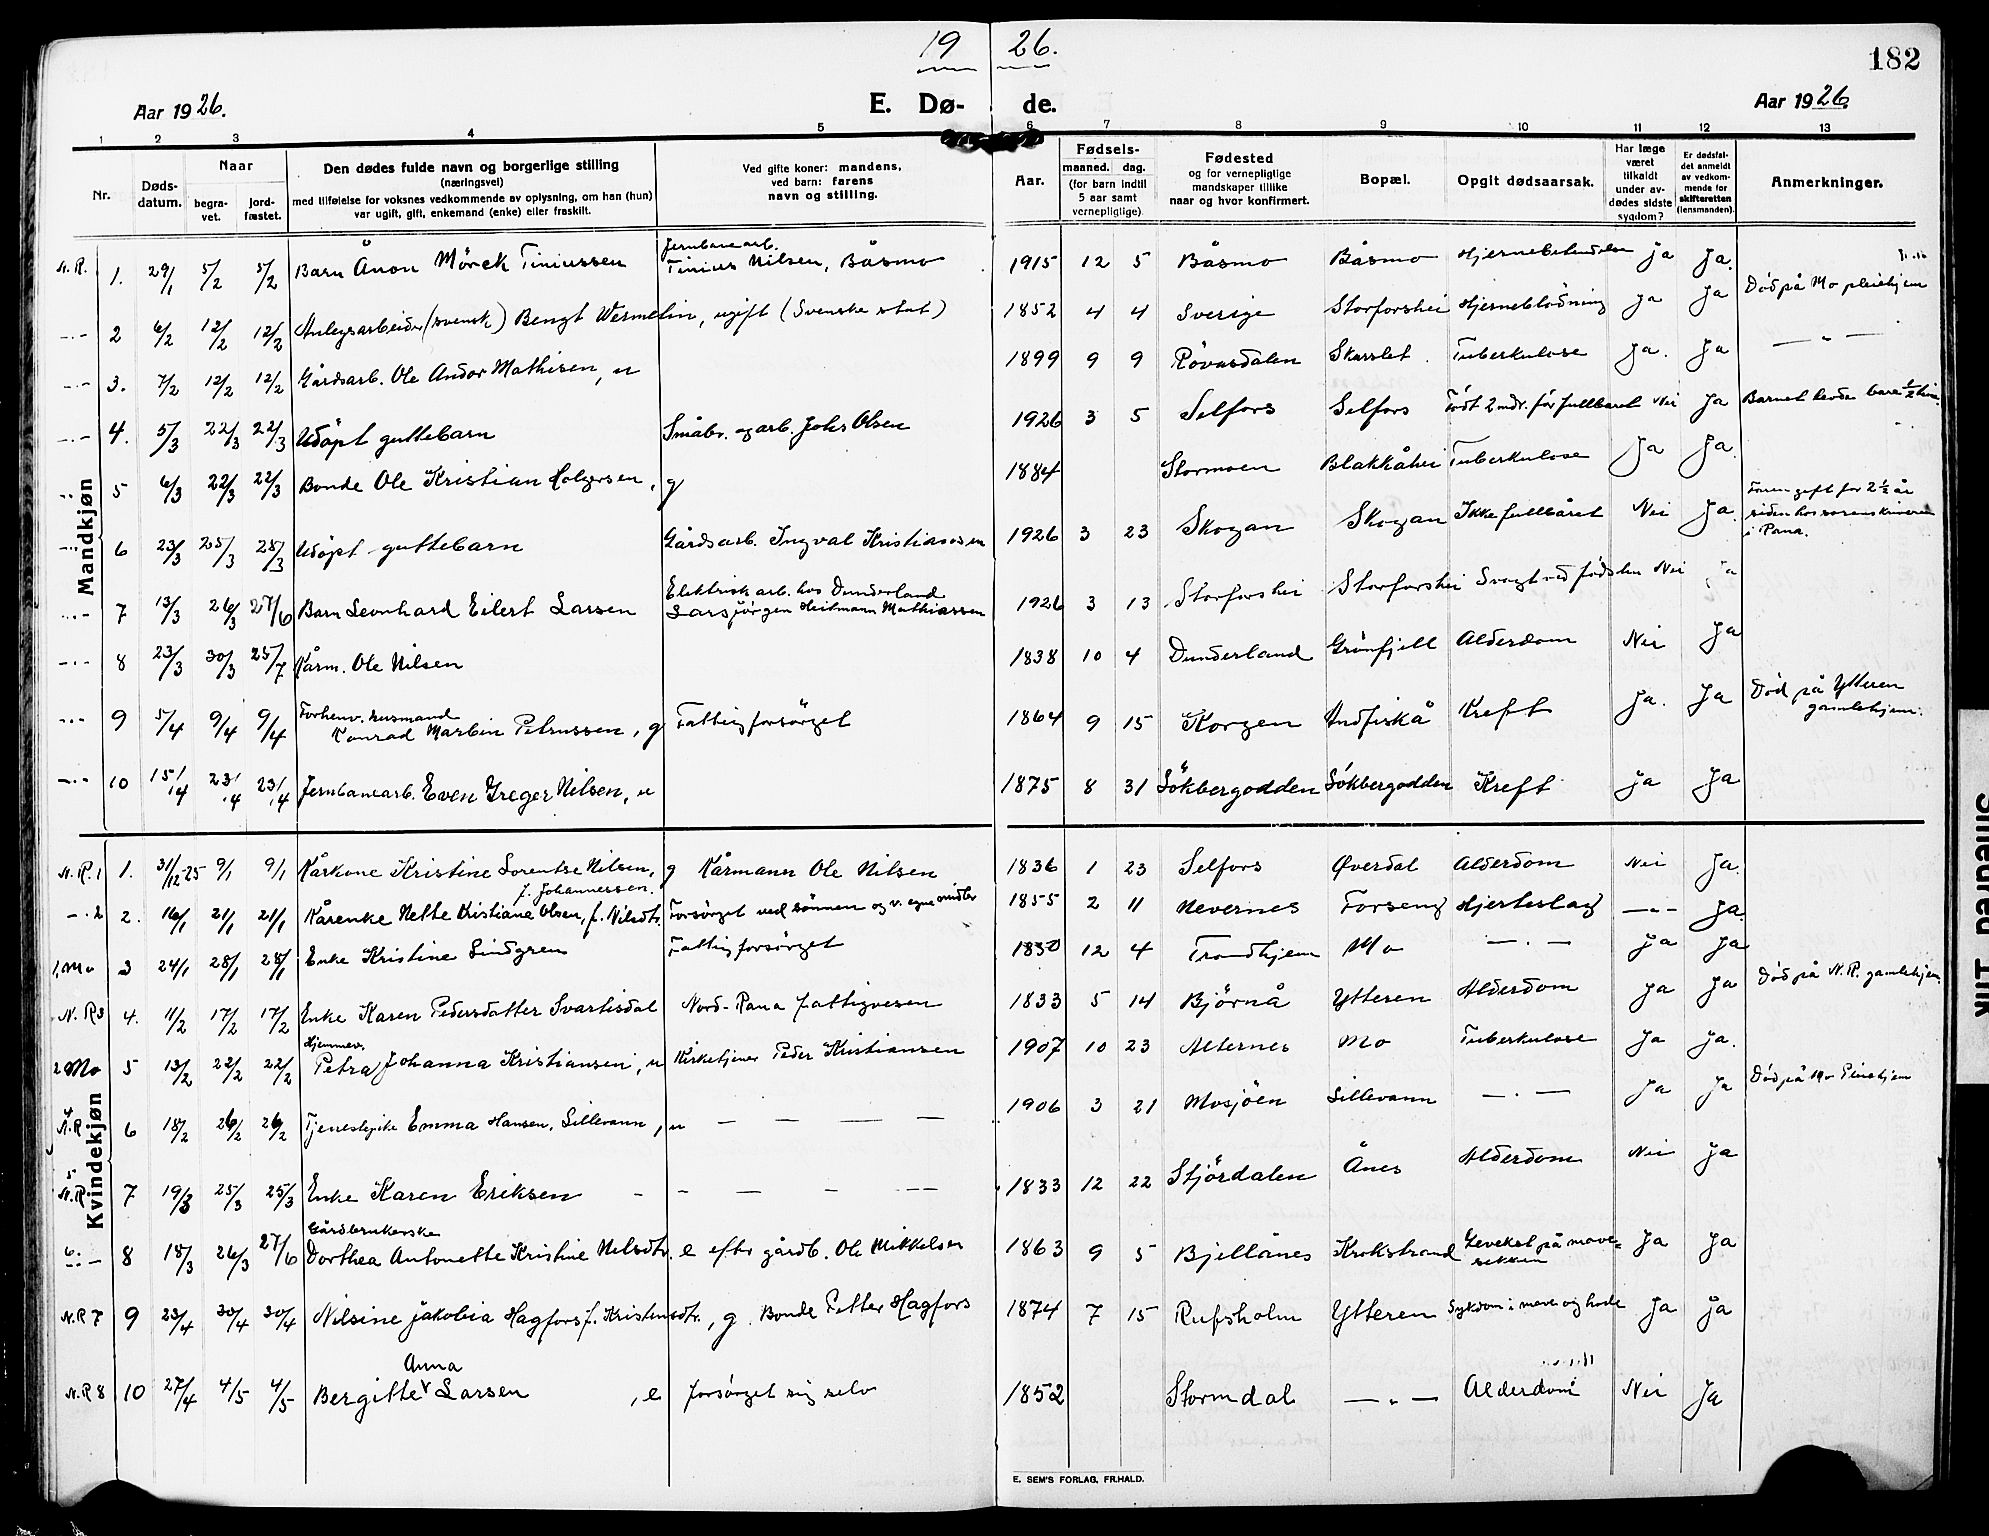 19 26.
182
Aar 1926. E. Dø- de. Aar 1926.
1 2 3 4 5 6 7 8 9 10 11 12 13
Nr. Døds-datum. Naar begra-vet. jord-fæstet. Den dødes fulde navn og borgerlige stilling (næringsvei) med tilføielse for voksnes vedkommende av oplysning, om han (hun) var ugift, gift, enkemand (enke) eller fraskilt. Ved gifte koner: mandens, ved barn: farens navn og stilling. Aar. Fødsels- maaned. dag. (for barn indtil 5 aar samt vernepligtige). Fødested og for vernepligtige mandskaper tillike naar og hvor konfirmert. Bopæl. Opgit dødsaarsak. Har læge været tilkaldt under av-dødes sidste sygdom? Er dødsfal-det anmeldt av vedkom-mende for skifteretten (lensmanden). Anmerkninger.
Mandkjøn
N. R. 1. 29/1 5/2 5/2 Barn Ånon Mörck Tiniussen Jernbanearb. Tinius Nilsen, Båsmo 1915 12 5 Båsmo Båsmo Hjernebetendelse Ja Ja.
-"- 2 6/2 12/2 12/2 Anlegsarbeider (svensk) Bengt Wermelin, ugift (Svenske stat) 1852 4 4 Sverige Storforshei Hjerneblödning Ja Ja Död på Mo pleiehjem
-"- 3. 7/2 12/2 12/2 Gårdsarb. Ole Andor Mathisen, u 1899 9 9 Rövasdalen Skarslet. Tuberkulose Ja. Ja — " —
-"- 4. 5/3 22/3 22/3 Udöpt guttebarn Småbr. og arb. Johs Olsen 1926 3 5 Selfors Selfors Födt 2 mdr. för fullbåret Nei Ja Barnet levde bare ½ time.
-"- 5 6/3 22/3 22/3 Bonde Ole Kristian Holgersen, g 1884 Stormoen Blakkåhei Tuberkulose Ja Ja.
-"- 6 23/3 25/3 25/3 Udöpt guttebarn Gårdsarb. Ingval Kristiansen 1926 3 23 Skogan Skogan Ikke fullbåret Nei Ja. for 2 ½ år siden hos sorenskriveren i Rana.
-"- 7 13/3 26/3 27/6 Barn Leonhard Eilert Larsen Elektrisk arb. hos Dunderland Lars Jörgen Heitmann Mathiassen 1926 3 13 Storforshei Storforshei Svagt ved födslen Nei Ja
-"- 8 23/3 30/3 25/7 Kårm. Ole Nilsen 1838 10 4 Dunderland Grönfjell Alderdom Nei Ja
-"- 9 5/4 9/4 9/4 Forhenv. husmand Konrad Martin Petrussen, g Fattigforsörget 1864 9 15 Korgen Andfiskå Kreft Ja. Ja Död på Ytteren gamlehjem.
-"- 10 15/4 23/4 23/4 Jernbanearb. Even Greger Nilsen, u 1875 8 31 Sökbergodden Sökbergodden Kreft Ja Ja
Kvindekjøn
N. R. 1 1. 31/12-25 9/1 9/1 Kårkone Kristine Sorentse Nilsen, f. Johannessen. g Kårmann Ole Nilsen 1836 1 23 Selfors Øverdal Alderdom Nei Ja.
-"- 2 2. 16/1 21/1 21/1 Kårenke Nette Kristiana Olsen, f. Nilsdtr. Forsörget ved sönnen og v. egne midler 1855 2 11 Nevernes Forseng Hjerteslag —"— Ja.
1, Mo 3 24/1 28/1 28/1 Enke Kristine Lindgren Fattigforsörget 1850 12 4 Trondhjem Mo — " — Ja Ja
N. R 3 4. 11/2 17/2 17/2 Enke Karen Pedersdatter Svartisdal Nord-Rana fattigvesen 1833 5 14 Björnå Ytteren Alderdom Ja Ja Död på N. R. gamlehjem
2 Mo 5 13/2 22/2 22/2 Hjemmev. Petra Johanna Kristiansen, u Kirketjener Peder Kristiansen 1907 10 23 Alternes Mo Tuberkulose Ja Ja.
4 N. R. 6 18/2 26/2 26/2 Tjenestepike Emma Hansen, Lillevann, u — — — — 1906 3 21 Mosjöen Lillevann — " — Ja Ja Död på Mo Pleiehjem
5 N. R 7 19/3 25/3 25/3 Enke Karen Eriksen - - — - — 1833 12 22 Stjördalen Ånes Alderdom Nei Ja
6. -"- 8 18/3 26/3 27/6 Gårdbrukerske Dorthea Antonette Kristine Nilsdtr. e efter gårdb. Ole Mikkelsen 1863 9 5 Bjellånes Krokstrand på mave-sekken Ja Ja
N. R 7 9 23/4 30/4 30/4 Nilsine Jakobia Hagfors f. Kristensdtr., g. Bonde Petter Hagfors 1874 7 15 Rufsholm Ytteren Sykdom i mave og hode Ja Ja
N. R 8 10 27/4 4/5 4/5 Bergitte Anna Larsen, e forsörget sig selv 1852 Stormdal — " — Alderdom Nei Ja
E. SEM'S FORLAG, FR.HALD.